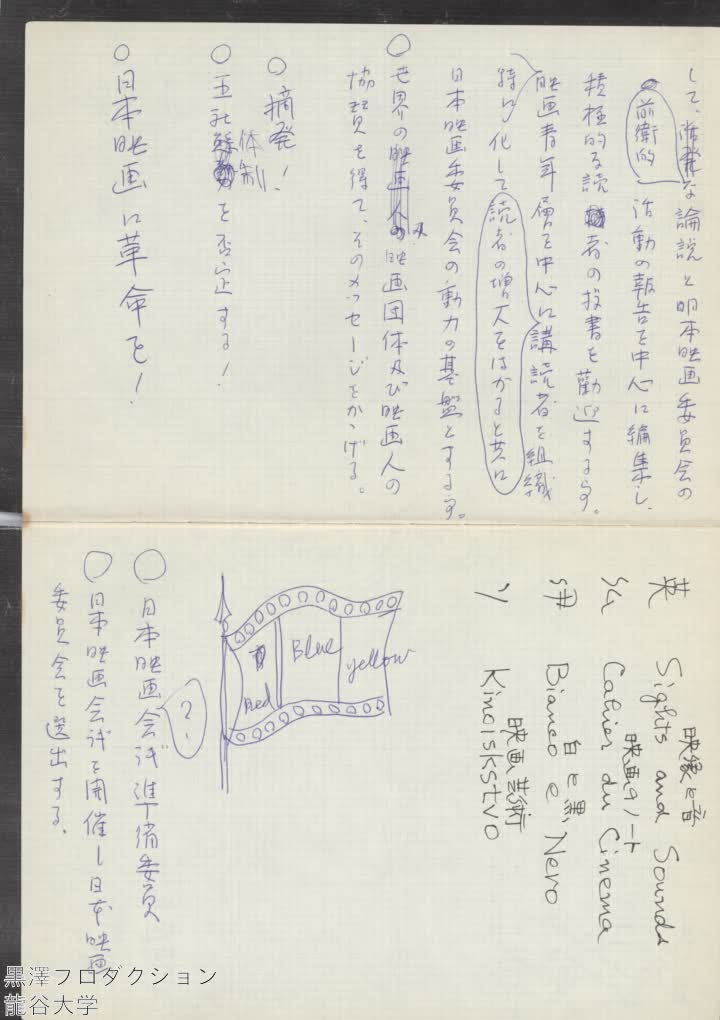 して、活発な論説と日本映画委員会の
前衛的活動の報告を中心に編集し、
積極的な読者の投書を歓迎する。
映画青年層を中心に講読者を組織
化して読者の増大をはかると共に
日本映画委員会の動力の基盤とする。
○世界の映画団体及び映画人の
協賛を得て、そのメッセージをかゝげる。
○摘発!
○五社体制を否定する!
○日本映画に革命を!
英 Sights and Sounds
映像と音
仏 Cahier du Cinema
映画のノート
伊 Bianco e Nero
白と黒
ソ Kinoiskstvo
映画芸術
Red Blue yellow
?
○日本映画会議準備委員
○日本映画会議を開催し日本映画
委員会を選出する。
黒澤プロダクション
龍谷大学